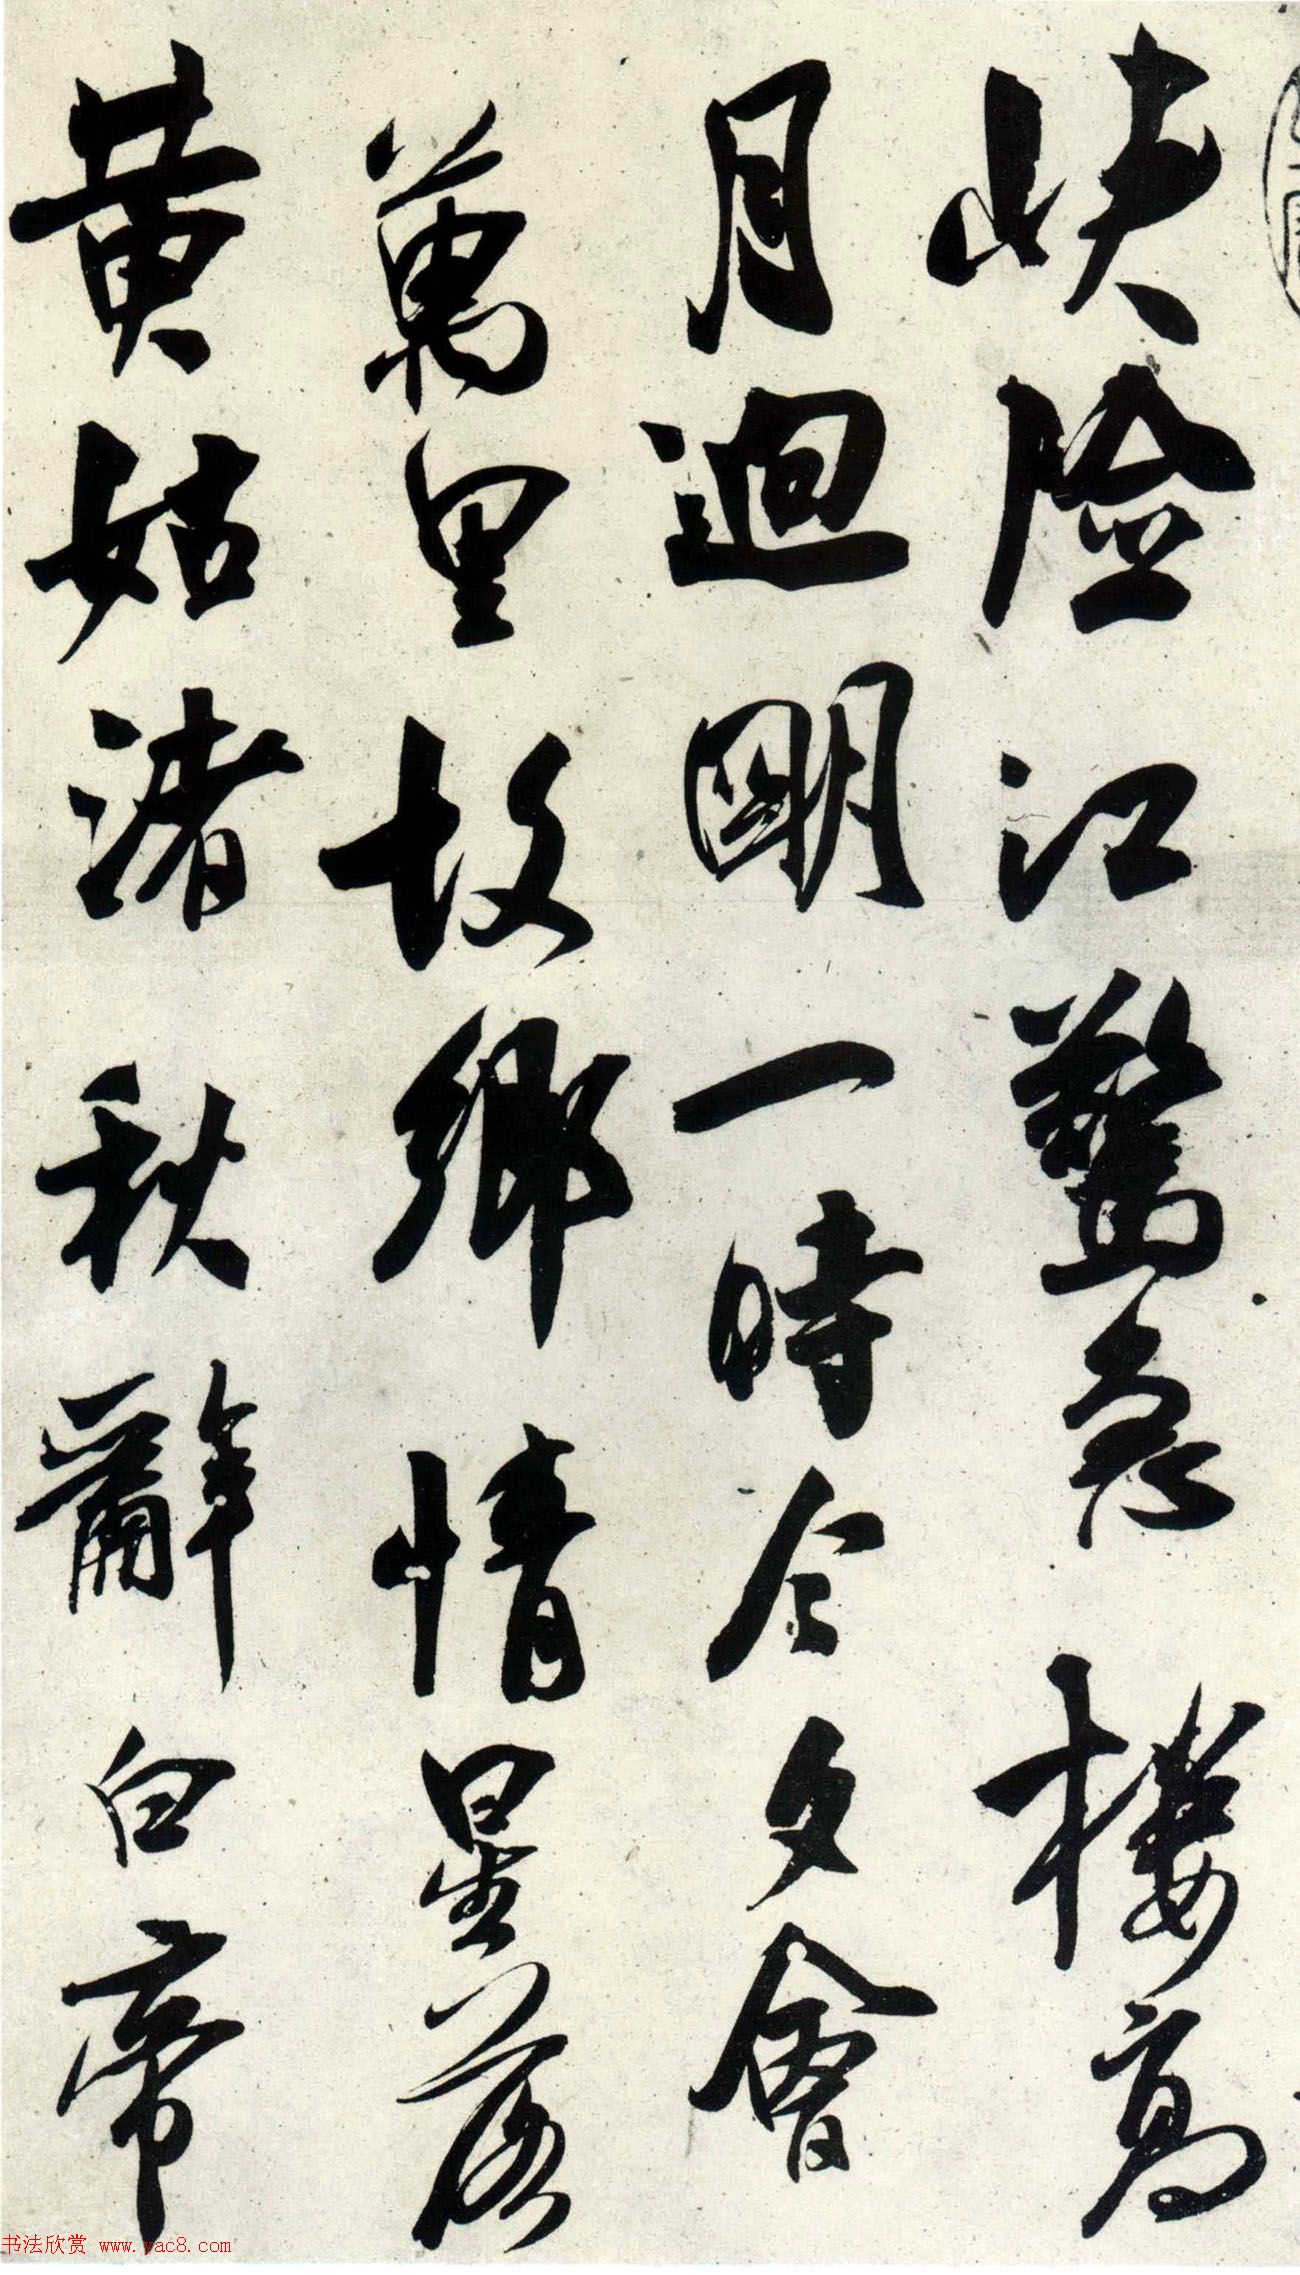 峽險江驚急樓高
月迥明一時今夕會
萬里故鄉情星落
黃姑渚秋辭白帝
书法欣赏 www.yac8.com